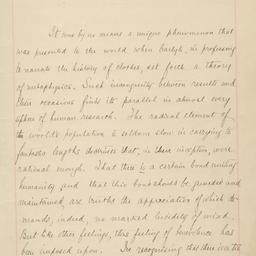 It was by no means a unique phenomenon that
was presented to the world when Carlyle, in professing
to narrate the history of clothes, set forth a theory
of metaphysics. Such incongruity between results and
their occasions finds its parallel in almost every
sphere of human research. The radical element of
the world's population is seldom slow in carrying to
fantastic lengths doctrines that, in their inception, were
rational enough. That there is a certain bond uniting
humanity and that this bond should be guarded and
maintained, are truths the appreciation of which de-
mands, indeed, no marked lucidity of mind.
But like other feelings, this feeling of benevolence has
been imposed upon. In recognizing that there was too